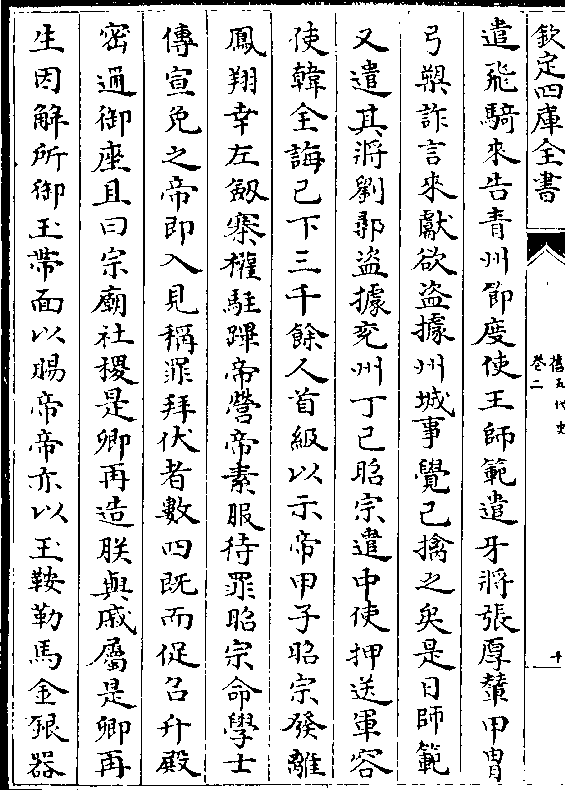 欽定四庫全書
舊五代史
卷二
十
遣飛騎來告青州節度使王師範遣牙將張厚輦甲胄
弓槊詐言來獻欲盗據州城事覺已擒之矣是日師範
又遣其將劉鄩盗據兖州丁巳昭宗遣中使押送軍容
使韓全誨已下三千餘人首級以示帝甲子昭宗發離
鳳翔幸左劔寨權駐蹕帝營帝素服待罪昭宗命學士
傳宣免之帝即入見稱罪拜伏者數四既而促召升殿
密通御座且曰宗廟社稷是卿再造朕與戚屬是卿再
生因解所御玉帶面以賜帝帝亦以玉鞍勒馬金銀器